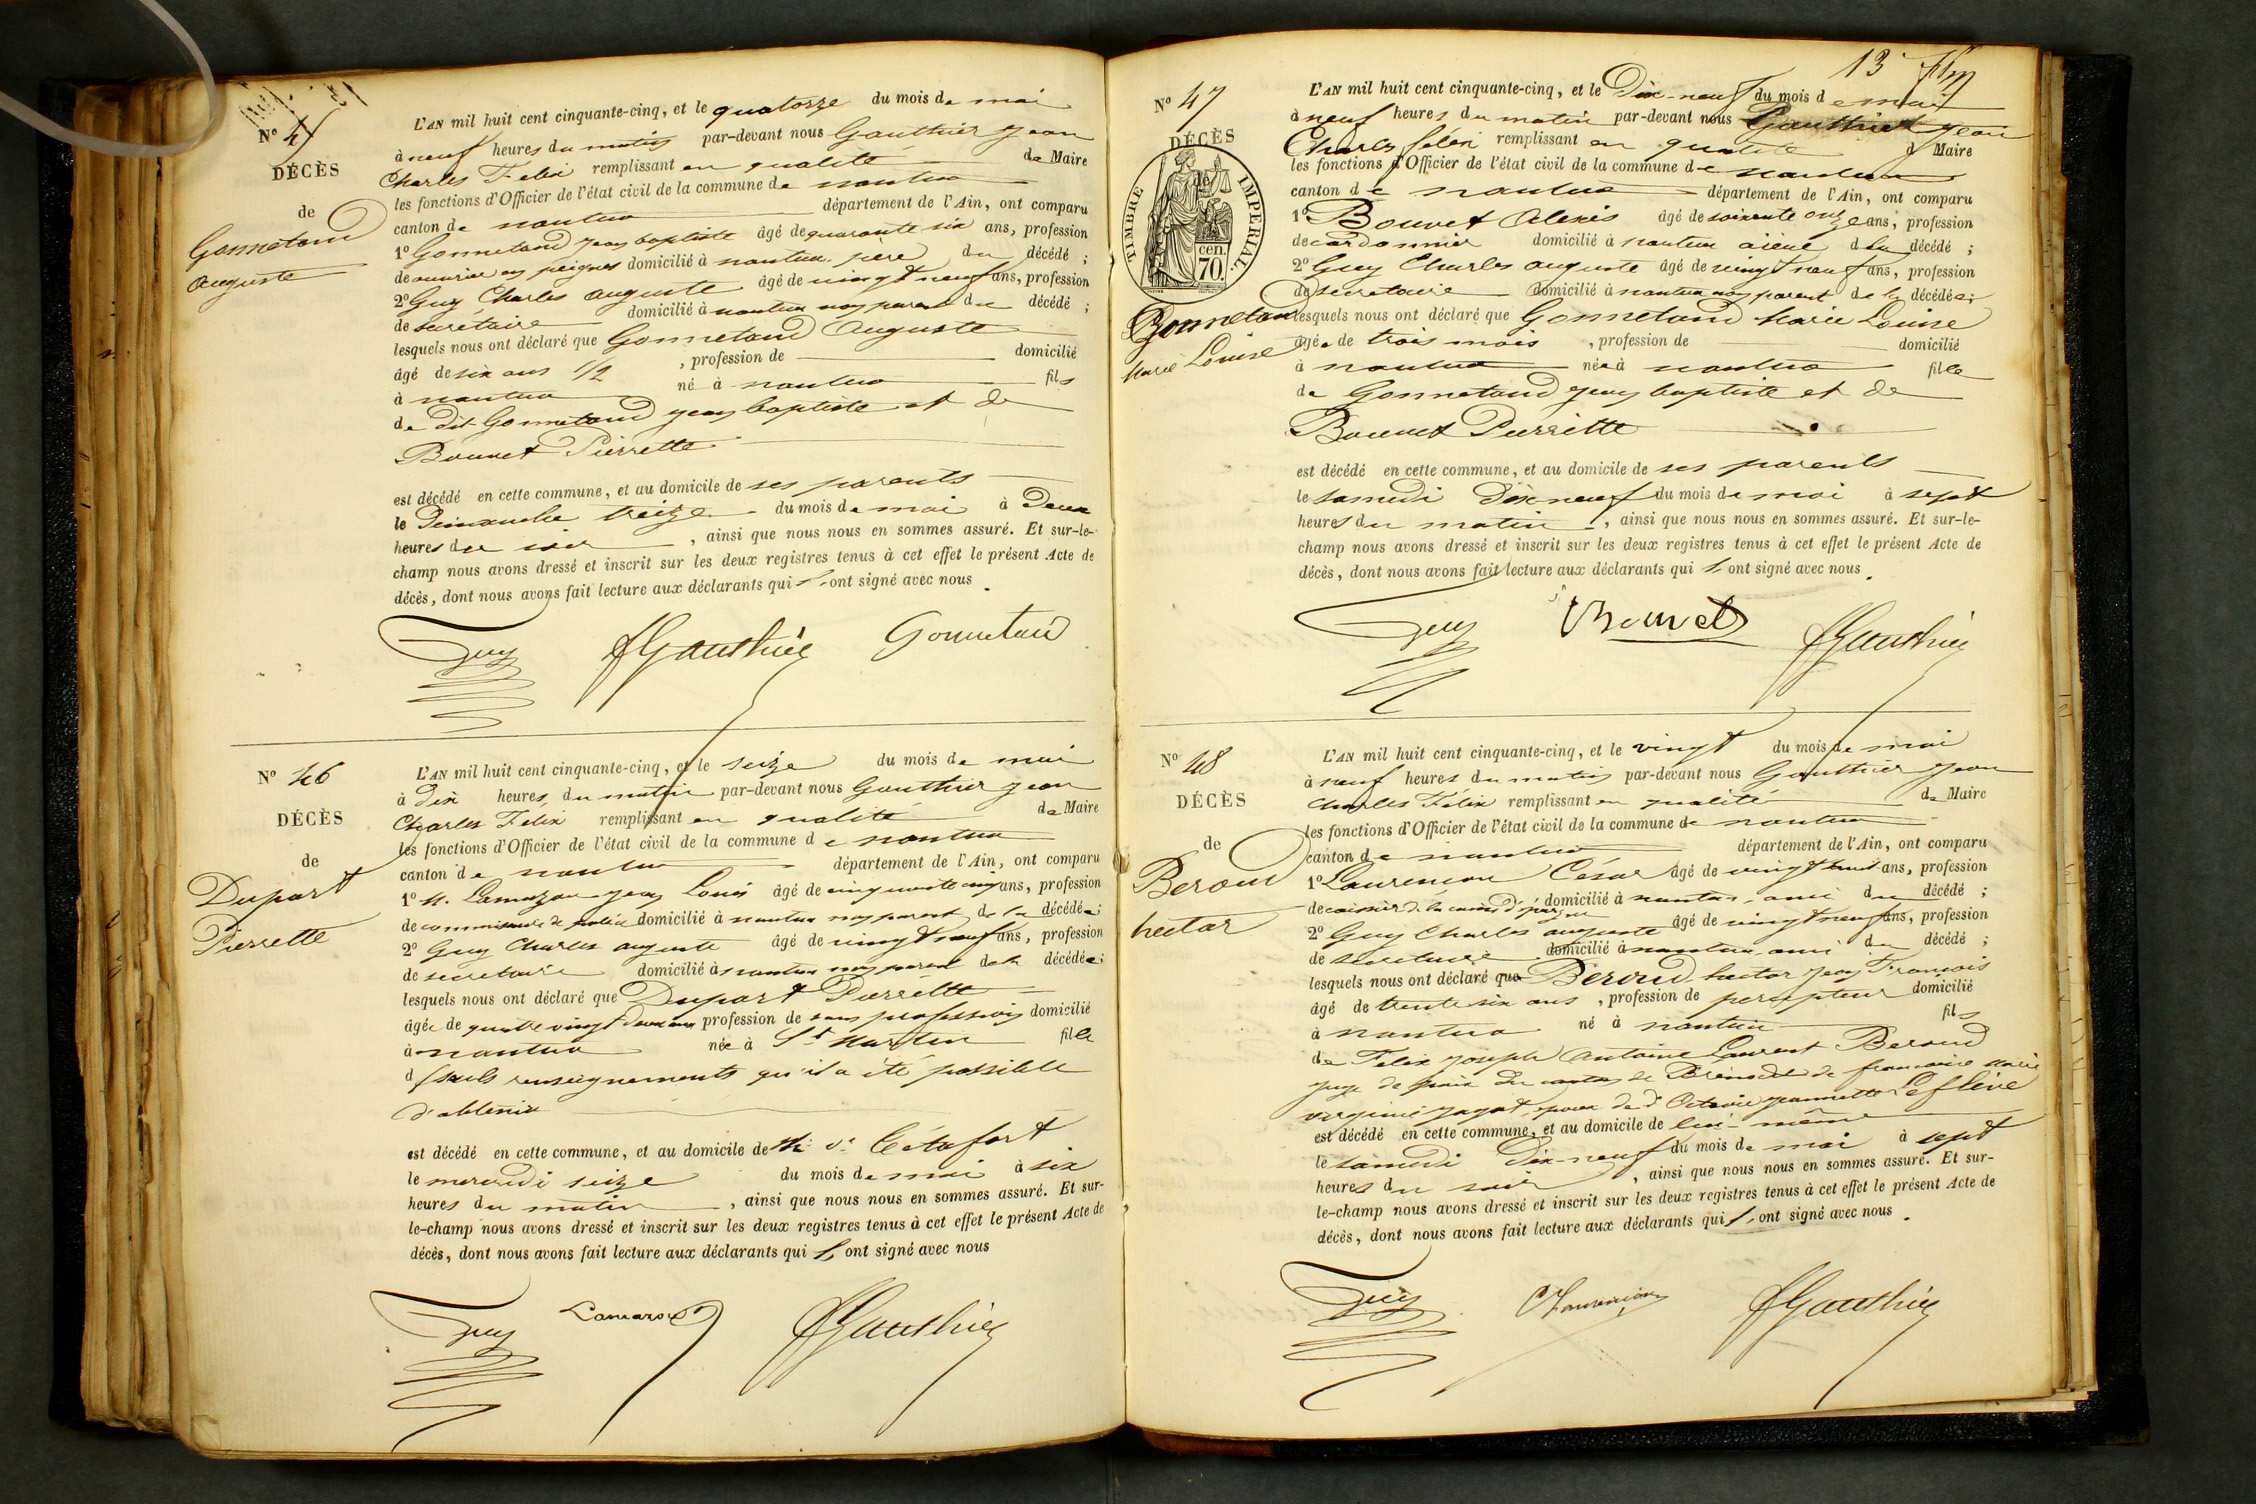 Nº 45
DÉCÈS
de
Gonnetand
Auguste
L'AN mil huit cent cinquante-cinq, et le quatorze du mois de mai
à neuf heures du matin par-devant nous Gauthier Jean
Charles Felix remplissant en qualité de Maire
les fonctions d'Officier de l'état civil de la commune de nantua
canton de nantua département de l'Ain, ont comparu
1º Gonnetand Jean baptiste âgé de quarante six ans, profession
de ouvrier en peignes domicilié à nantua père du décédé ;
2º Guy Charles auguste âgé de vingt neuf ans, profession
de secrétaire domicilié à nantua non parent du décédé ;
lesquels nous ont déclaré que Gonnetand Auguste
âgé de six ans 1/2 , profession de domicilié
à nantua né à nantua fils
de dit Gonnetand Jean baptiste et de
Bouvet Pierrette
est décédé en cette commune, et au domicile de ses parents
le Dimanche treize du mois de mai à Deux
heures du soir , ainsi que nous nous en sommes assuré. Et sur-le-
champ nous avons dressé et inscrit sur les deux registres tenus à cet effet le présent Acte de
décès, dont nous avons fait lecture aux déclarants qui l'ont signé avec nous.
Guy FGauthier Gonnetand
Nº 46
DÉCÈS
de
Dupart
Pierrette
L'AN mil huit cent cinquante-cinq, et le seize du mois de mai
à dix heures du matin par-devant nous Gauthier Jean
Charles Felix remplissant en qualité de Maire
les fonctions d'Officier de l'état civil de la commune de nantua
canton de nantua département de l'Ain, ont comparu
1º M. Jean Louis âgé de cinquante cinq ans, profession
de commissaire de police domicilié à nantua non parent de la décédée ;
2º Guy Charles auguste âgé de vingt neuf ans, profession
de secretaire domicilié à nantua non parent de la décédée ;
lesquels nous ont déclaré que Dupart Pierrette
âgée de quatre vingt deux ans profession de sans profession domicilié
à nantua née à St Martin fille
d seuls renseignements qu'il a été possible
d'obtenir
est décédé en cette commune, et au domicile de
le mercredi seize du mois de mai à six
heures du matin , ainsi que nous nous en sommes assuré. Et sur-
le-champ nous avons dressé et inscrit sur les deux registres tenus à cet effet le présent Acte de
décès, dont nous avons fait lecture aux déclarants qui l'ont signé avec nous
Guy FGauthier
13
Nº 47
DÉCÈS
de
TIMBRE IMPERIAL.
70.
cen.
Gonnetand
Marie Louise
L'AN mil huit cent cinquante-cinq, et le Dix-neuf du mois de mai
à neuf heures du matin par-devant nous Gauthier Jean
Charles félix remplissant en qualité d Maire
les fonctions d'Officier de l'état civil de la commune de nantua
canton de nantua département de l'Ain, ont comparu
1º Bouvet Alexis âgé de soixante onze ans, profession
de cordonnier domicilié à nantua aïeul de la décédé ;
2º Guy Charles auguste âgé de vingt neuf ans, profession
de secretaire domicilié à nantua non parent de la décédée ;
lesquels nous ont déclaré que Gonnetand Marie Louise
âgée de trois mois , profession de domicilié
à nantua née à nantua fille
de Gonnetand Jean baptiste et de
Bouvet Pierrette
est décédé en cette commune, et au domicile de ses parents
le samedi dix neuf du mois de mai à sept
heures du matin , ainsi que nous nous en sommes assuré. Et sur-le-
champ nous avons dressé et inscrit sur les deux registres tenus à cet effet le présent Acte de
décès, dont nous avons fait lecture aux déclarants qui l'ont signé avec nous.
Guy Bouvet FGauthier
Nº 48
DÉCÈS
de
Beroud
hector
L'AN mil huit cent cinquante-cinq, et le vingt du mois de mai
à neuf heures du matin par-devant nous Gauthier Jean
Charles Félix remplissant en qualité de Maire
les fonctions d'Officier de l'état civil de la commune de nantua
canton de nantua département de l'Ain, ont comparu
1º Laurencon César âgé de vingt huit ans, profession
de caissier de la caisse d'épargne domicilié à nantua, ami du décédé ;
2º Guy Charles auguste âgé de vingt neuf ans, profession
de secretaire domicilié à nantua ami du décédé ;
lesquels nous ont déclaré que Béroud hector Jean François
âgé de trente six ans , profession de percepteur domicilié
à nantua né à nantua fils
de Felix Joseph Antoine Laurent Beroud
juge de paix du canton de Brénod et de francoise Marie
virginie Jagot, époux de de Octavie Jeannette
est décédé en cette commune, et au domicile de lui-même
le samedi Dix-neuf du mois de mai à sept
heures du soir , ainsi que nous nous en sommes assuré. Et sur-
le-champ nous avons dressé et inscrit sur les deux registres tenus à cet effet le présent Acte de
décès, dont nous avons fait lecture aux déclarants qui l'ont signé avec nous.
Guy CLaurencon FGauthier